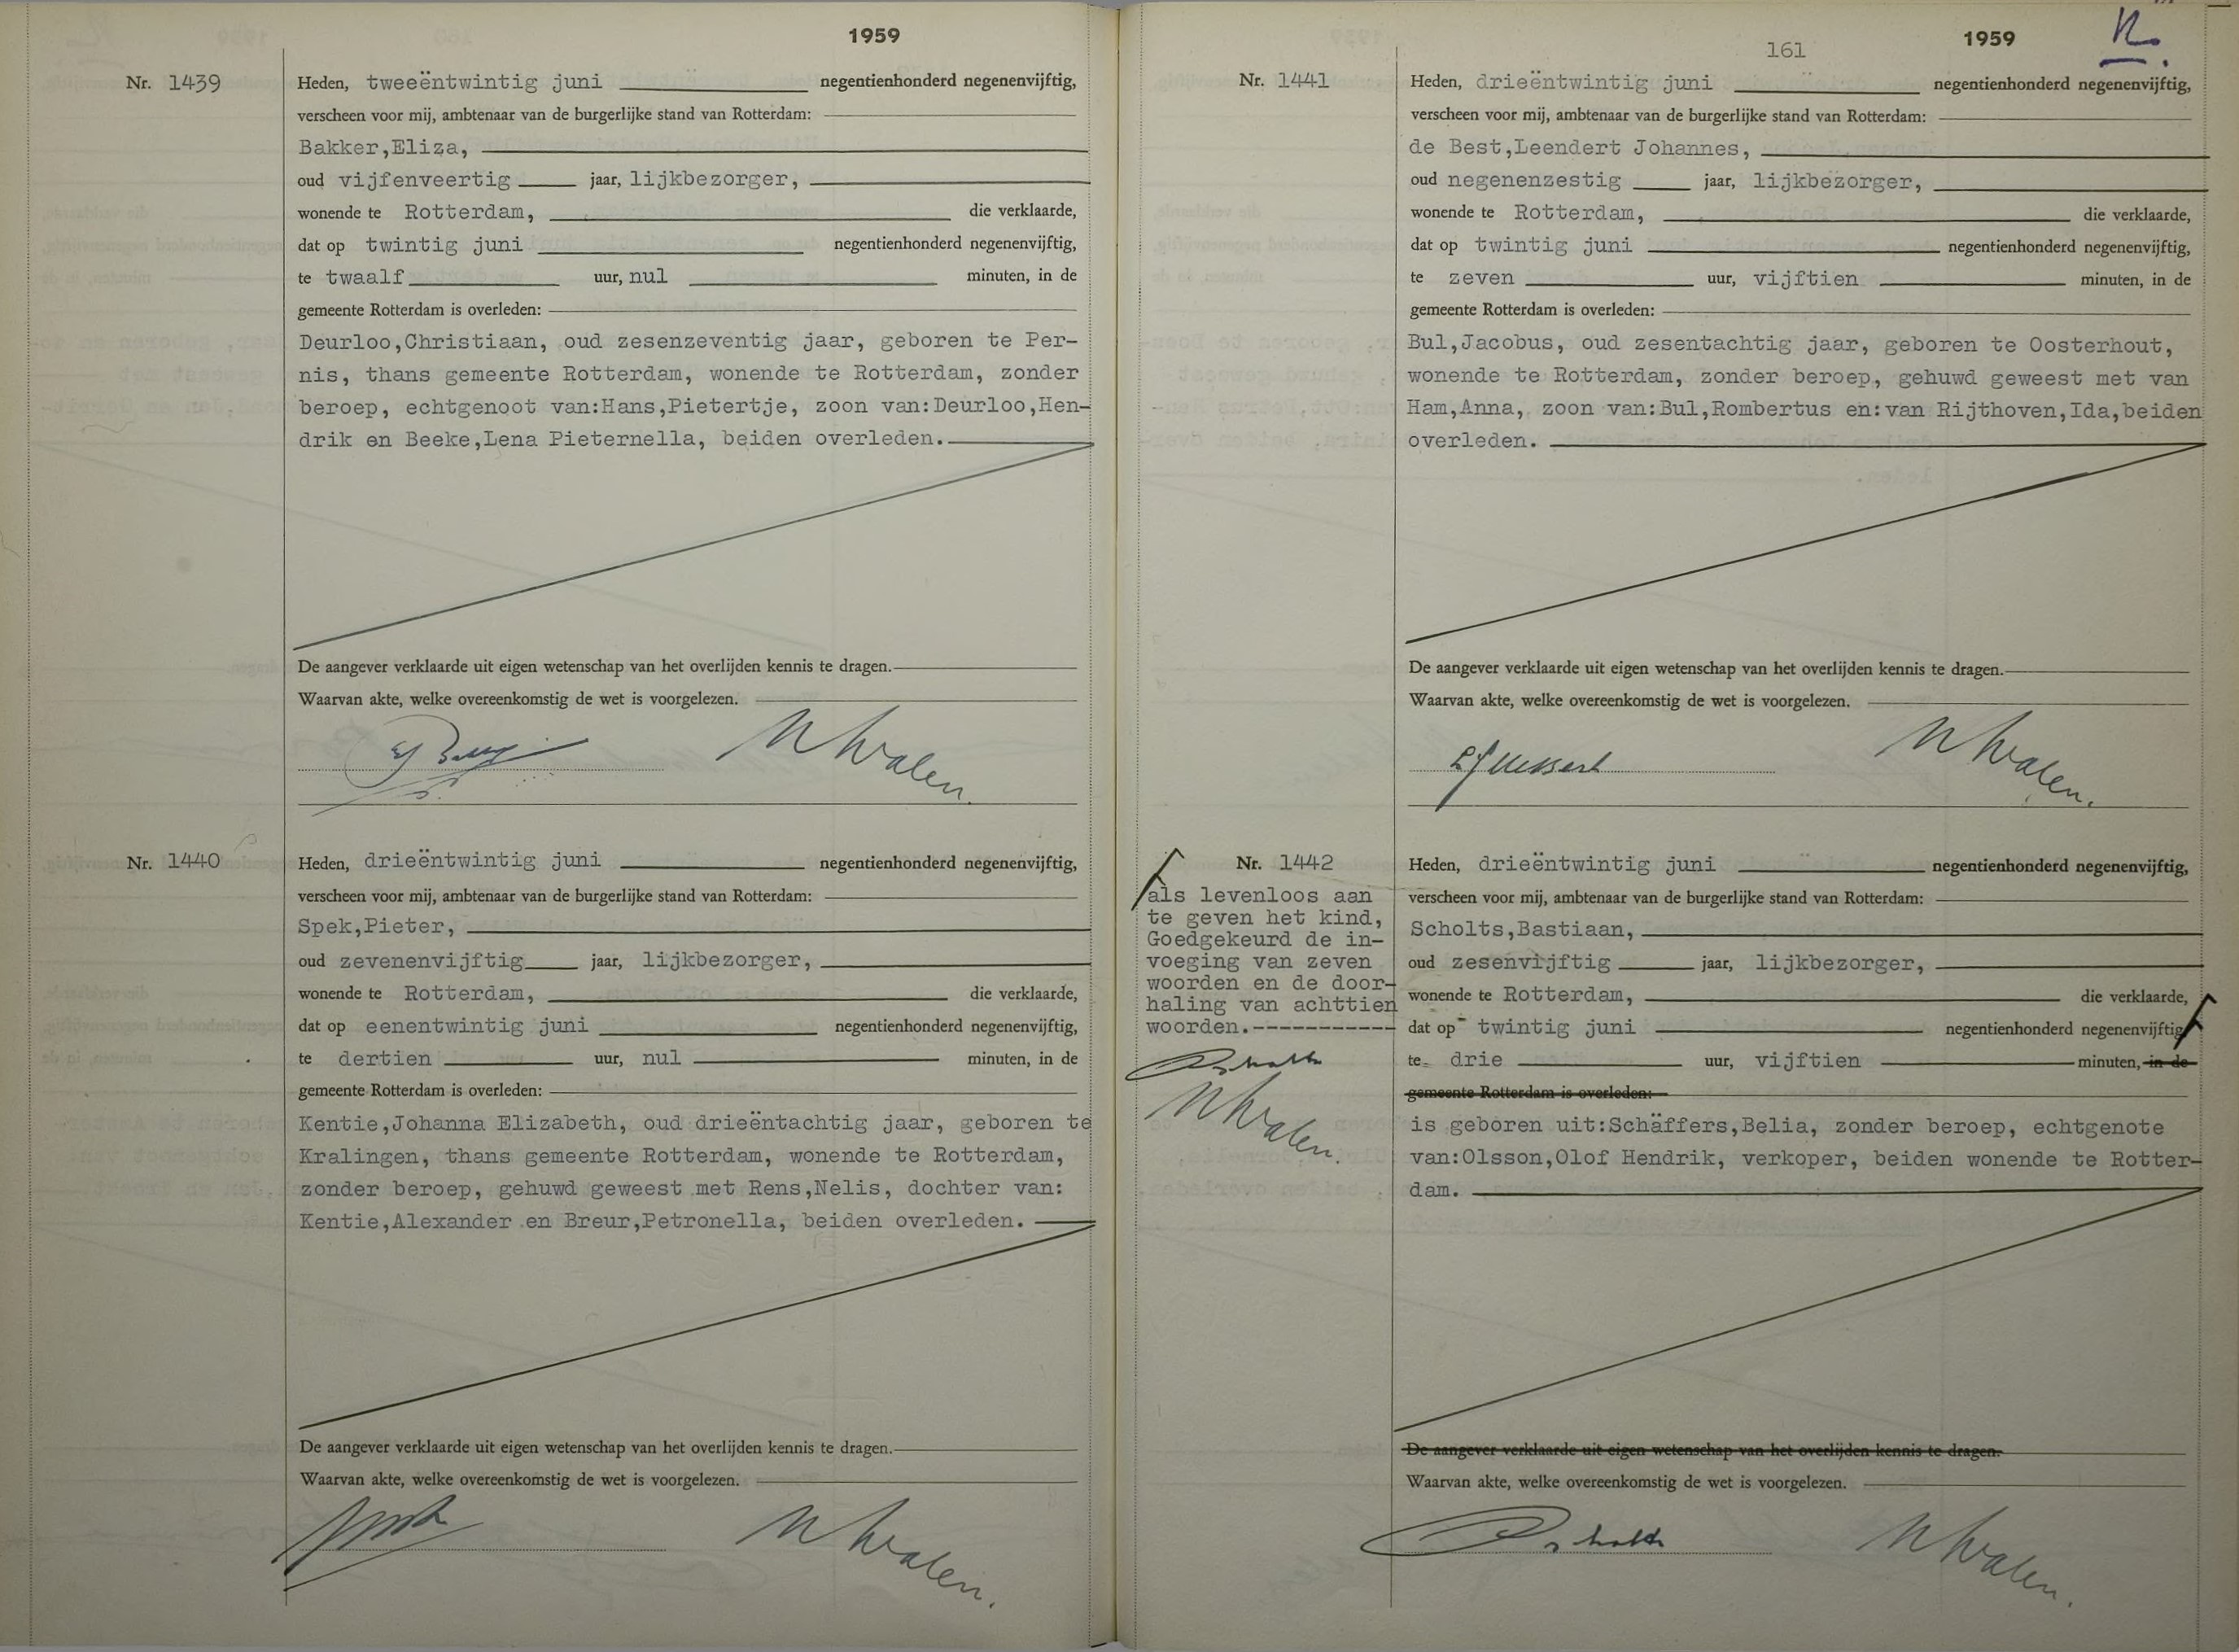 1959
Nr. 1439
Heden, tweeëntwintig juni negentienhonderd negenenvijftig,
verscheen voor mij, ambtenaar van de burgerlijke stand van Rotterdam:
Bakker,Eliza,
oud vijfenveertig jaar, lijkbezorger,
wonende te Rotterdam, die verklaarde,
dat op twintig juni negentienhonderd negenenvijftig,
te twaalf uur, nul minuten, in de
gemeente Rotterdam is overleden:
Deurloo,Christiaan, oud zesenzeventig jaar, geboren te Per-
nis, thans gemeente Rotterdam, wonende te Rotterdam, zonder
beroep, echtgenoot van:Hans,Pietertje, zoon van:Deurloo,Hen-
drik en Beeke,Lena Pieternella, beiden overleden.
De aangever verklaarde uit eigen wetenschap van het overlijden kennis te dragen.
Waarvan akte, welke overeenkomstig de wet is voorgelezen.
Nr. 1440
Heden, drieëntwintig juni negentienhonderd negenenvijftig,
verscheen voor mij, ambtenaar van de burgerlijke stand van Rotterdam:
Spek,Pieter,
oud zevenenvijftig jaar, lijkbezorger,
wonende te Rotterdam, die verklaarde,
dat op eenentwintig juni negentienhonderd negenenvijftig,
te dertien uur, nul minuten, in de
gemeente Rotterdam is overleden:
Kentie,Johanna Elizabeth, oud drieëntachtig jaar, geboren te
Kralingen, thans gemeente Rotterdam, wonende te Rotterdam,
zonder beroep, gehuwd geweest met Rens,Nelis, dochter van:
Kentie,Alexander en Breur,Petronella, beiden overleden.
De aangever verklaarde uit eigen wetenschap van het overlijden kennis te dragen.
Waarvan akte, welke overeenkomstig de wet is voorgelezen.
161 1959
Nr. 1441
Heden, drieëntwintig juni negentienhonderd negenenvijftig,
verscheen voor mij, ambtenaar van de burgerlijke stand van Rotterdam:
de Best,Leendert Johannes,
oud negenenzestig jaar, lijkbezorger,
wonende te Rotterdam, die verklaarde,
dat op twintig juni negentienhonderd negenenvijftig,
te zeven uur, vijftien minuten, in de
gemeente Rotterdam is overleden:
Bul,Jacobus, oud zesentachtig jaar, geboren te Oosterhout,
wonende te Rotterdam, zonder beroep, gehuwd geweest met van
Ham,Anna, zoon van:Bul,Rombertus en:van Rijthoven,Ida,beiden
overleden.
De aangever verklaarde uit eigen wetenschap van het overlijden kennis te dragen.
Waarvan akte, welke overeenkomstig de wet is voorgelezen.
Nr. 1442
als levenloos aan
te geven het kind,
Goedgekeurd de in-
voeging van zeven
woorden en de door-
haling van achttien
woorden.-----------
Heden, drieëntwintig juni negentienhonderd negenenvijftig,
verscheen voor mij, ambtenaar van de burgerlijke stand van Rotterdam:
Scholts,Bastiaan,
oud zesenvijftig jaar, lijkbezorger,
wonende te Rotterdam, die verklaarde,
dat op twintig juni negentienhonderd negenenvijftig
te drie uur, vijftien minuten, in de
gemeente Rotterdam is overleden:
is geboren uit:Schäffers,Belia, zonder beroep, echtgenote
van:Olsson,Olof Hendrik, verkoper, beiden wonende te Rotter-
dam.
De aangever verklaarde uit eigen wetenschap van het overlijden kennis te dragen.
Waarvan akte, welke overeenkomstig de wet is voorgelezen.